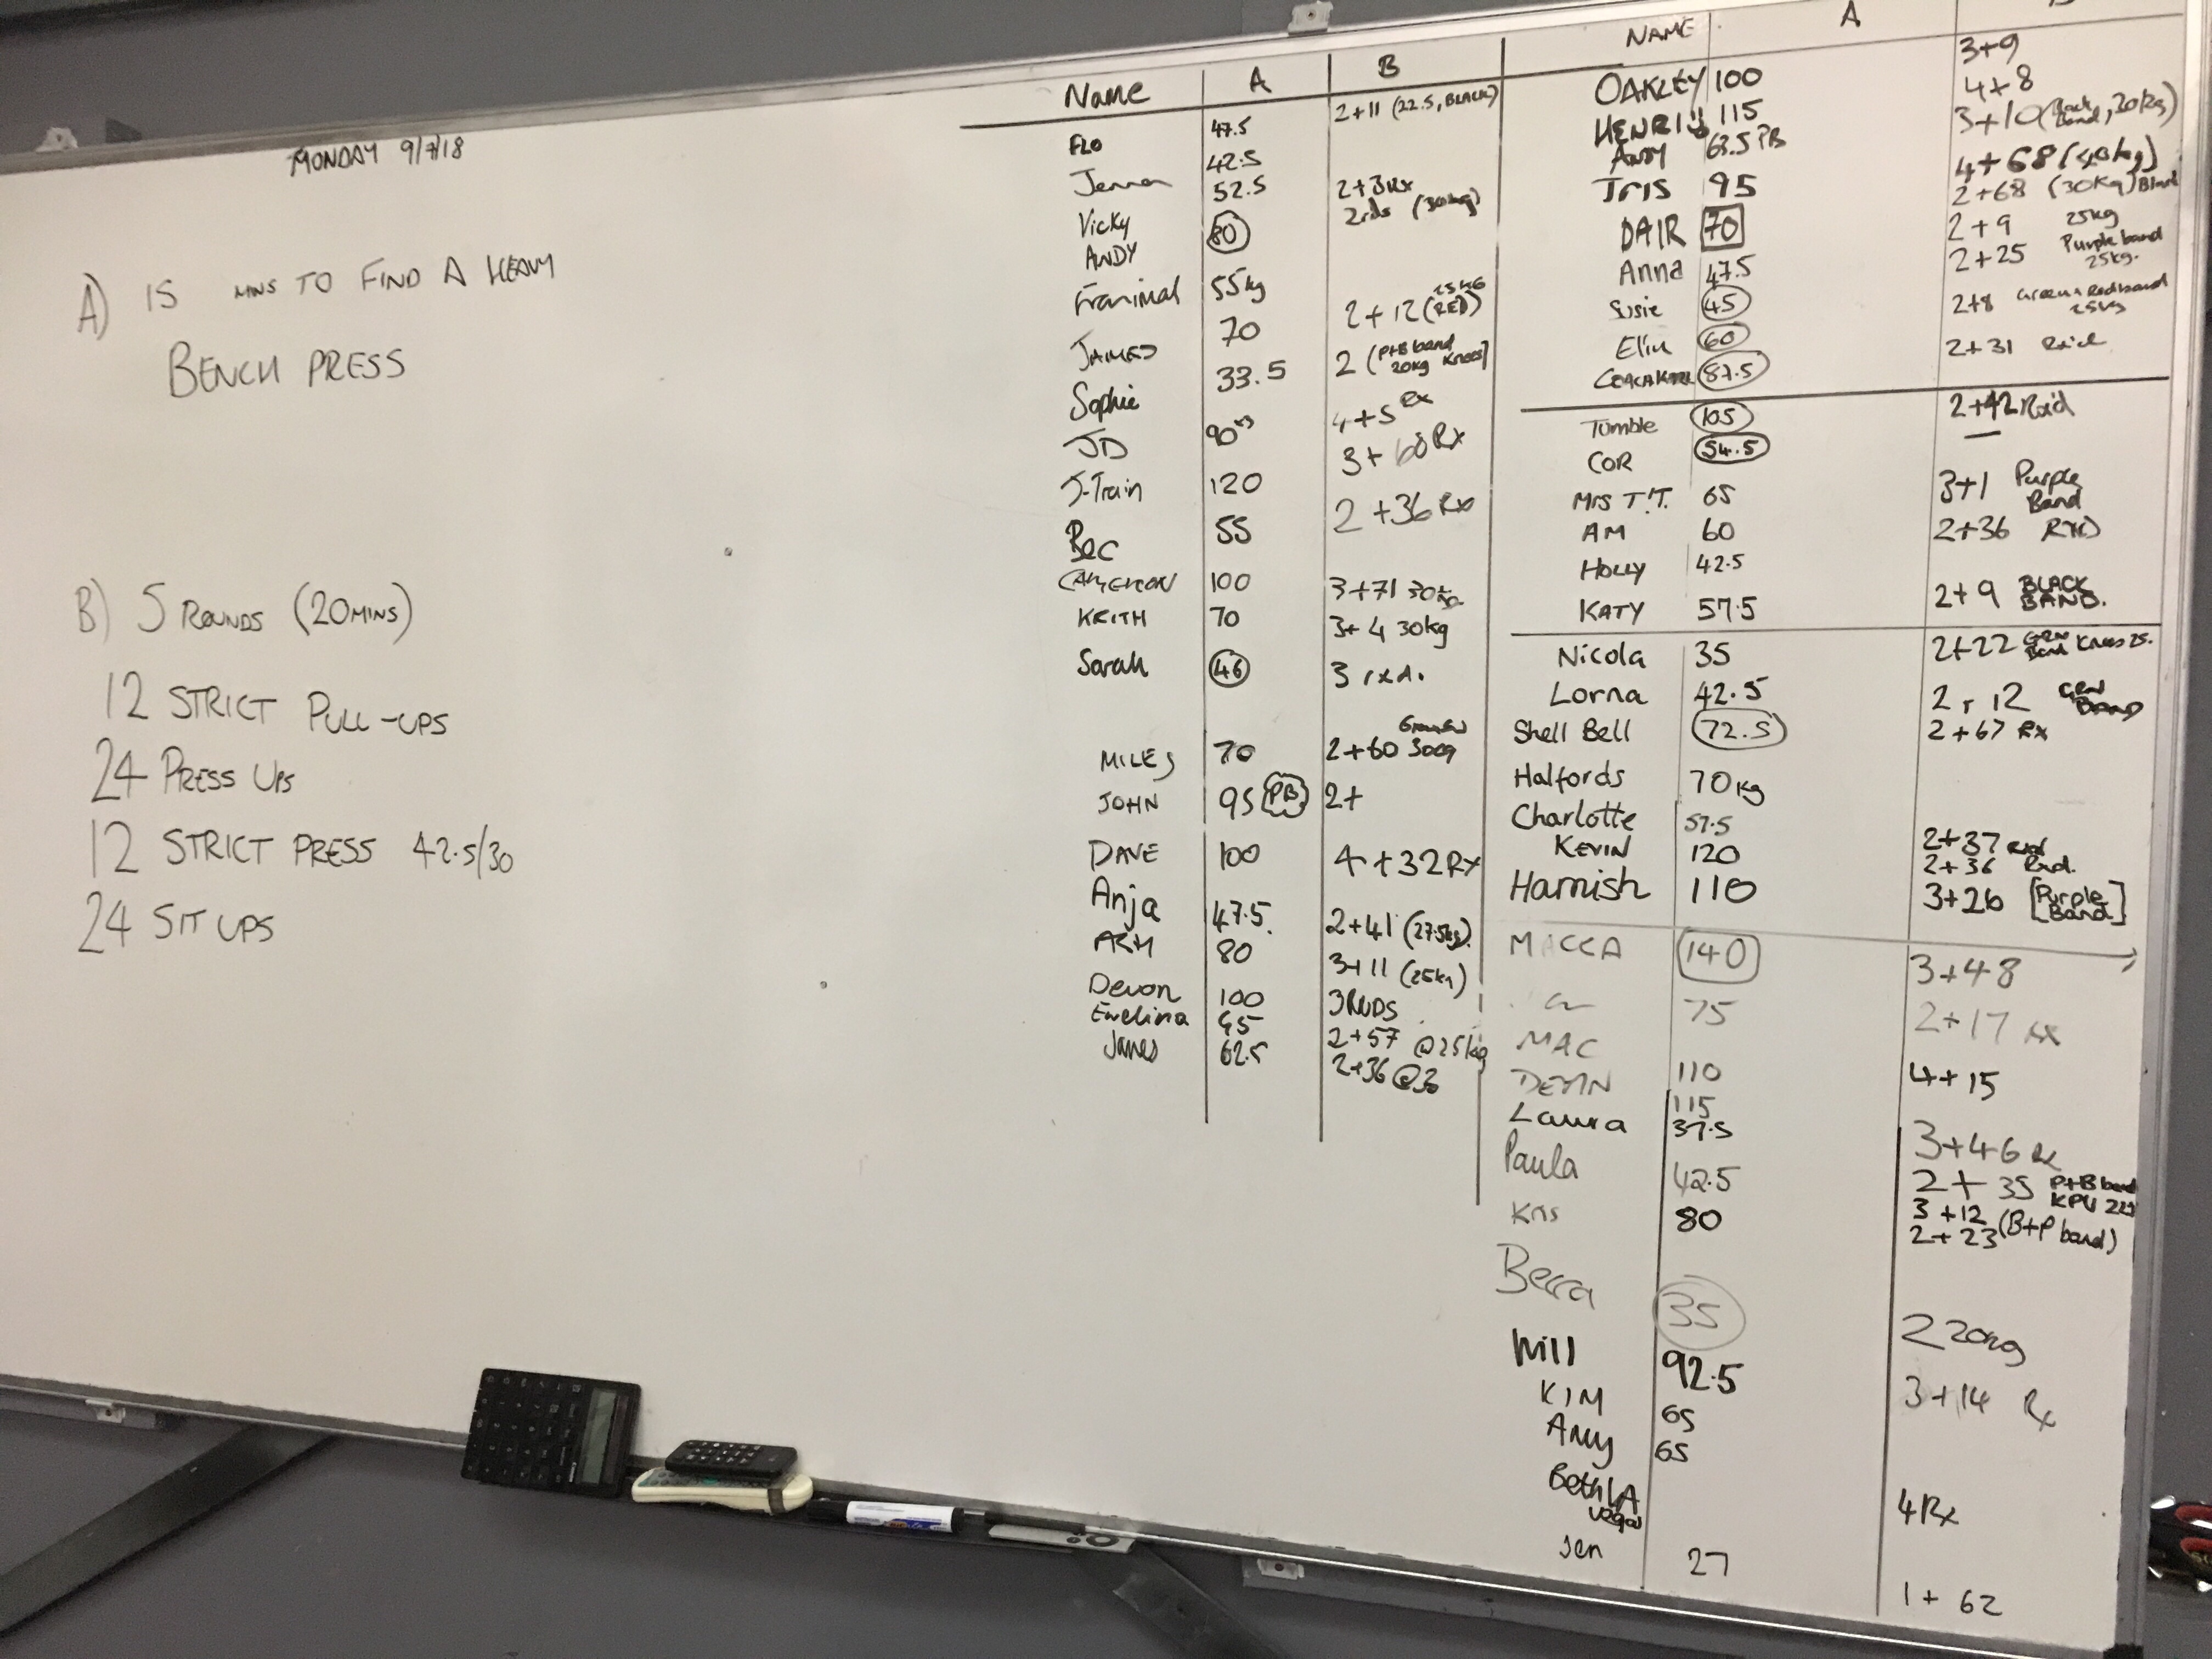 MONDAY 9/7/18
A) 15 MINS TO FIND A HEAVY
BENCH PRESS
B) 5 ROUNDS (20MINS)
12 STRICT PULL-UPS
24 PRESS UPS
12 STRICT PRESS 42.5/30
24 SIT UPS
Name A B
FLO 47.5 2+11 (22.5, BLACK)
Jenna 42.5
Vicky 52.5 2+3Rx
ANDY 80 2rds (30kg)
Franimal 55kg 2+12 (RED) 25KG
JAMES 70
Sophie 33.5 2 (P+B band 20kg Knees)
JD 90 4+5 Rx
J-Train 120 3+60 Rx
Bec 55 2+36 Rx
CAMERON 100 3+71 30kg
KEITH 70 3+4 30kg
Sarah 46 3 rxd.
MILES 70 2+60 30kg
JOHN 95 PB 2+
DAVE 100 4+32 Rx
Anja 47.5 2+41 (27.5kg)
80 3+11 (25kg)
Devon 100 3RNDS
Ewelina 45 2+57 @25kg
James 62.5 2+36 @30
NAME A B
OAKLEY 100 3+9
HENRI 115 4+8
ANDY 63.5 PB 3+10 (Black Band, 30kg)
Iris 95 4+68 (40kg)
DAIR 70 2+68 (30kg)
Anna 47.5 2+9 25kg
Susie 45 2+25 Purple band 25kg.
Elin 60 2+8 Green+Red band 25kg
COACH 87.5 2+31
Tumble 105 2+42 Rx'd
COR 54.5 —
MRS T.T. 65 3+1 Purple Band
AM 60 2+36 RXD
HOLLY 42.5
KATY 57.5 2+9 BLACK BAND.
Nicola 35 2+22 Grn Band Knees 25.
Lorna 42.5 2+12 Grn BAND
Shell Bell 72.5 2+67 Rx
Halfords 70kg
Charlotte 57.5 2+37 rxd
KEVIN 120 2+36 Rxd.
Hamish 110 3+26 [Purple Band]
MACCA 140 3+48
75 2+17 RX
MAC 110 4+15
115
Laura 37.5 3+46 Rx
Paula 42.5 2+35 P+B band KPU
Kris 80 3+12 (B+P band)
2+23
Becca 35 2 20kg
Will 92.5 3+14 Rx
KIM 65
Amy 65 4 Rx
Beth LA vegas
Jen 27 1+62